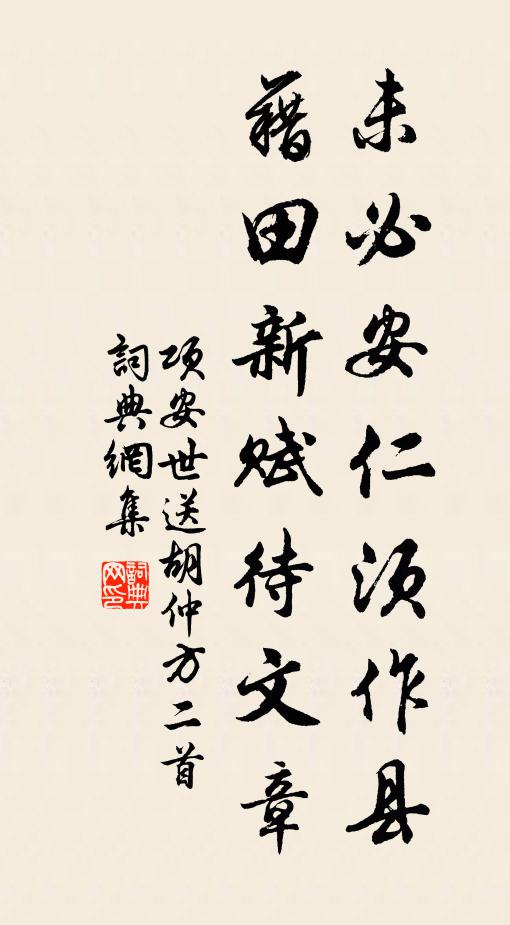 未必安仁须作县
藉田新赋待文章
项安世送胡仲方二首
詞典網集
詞典
网印